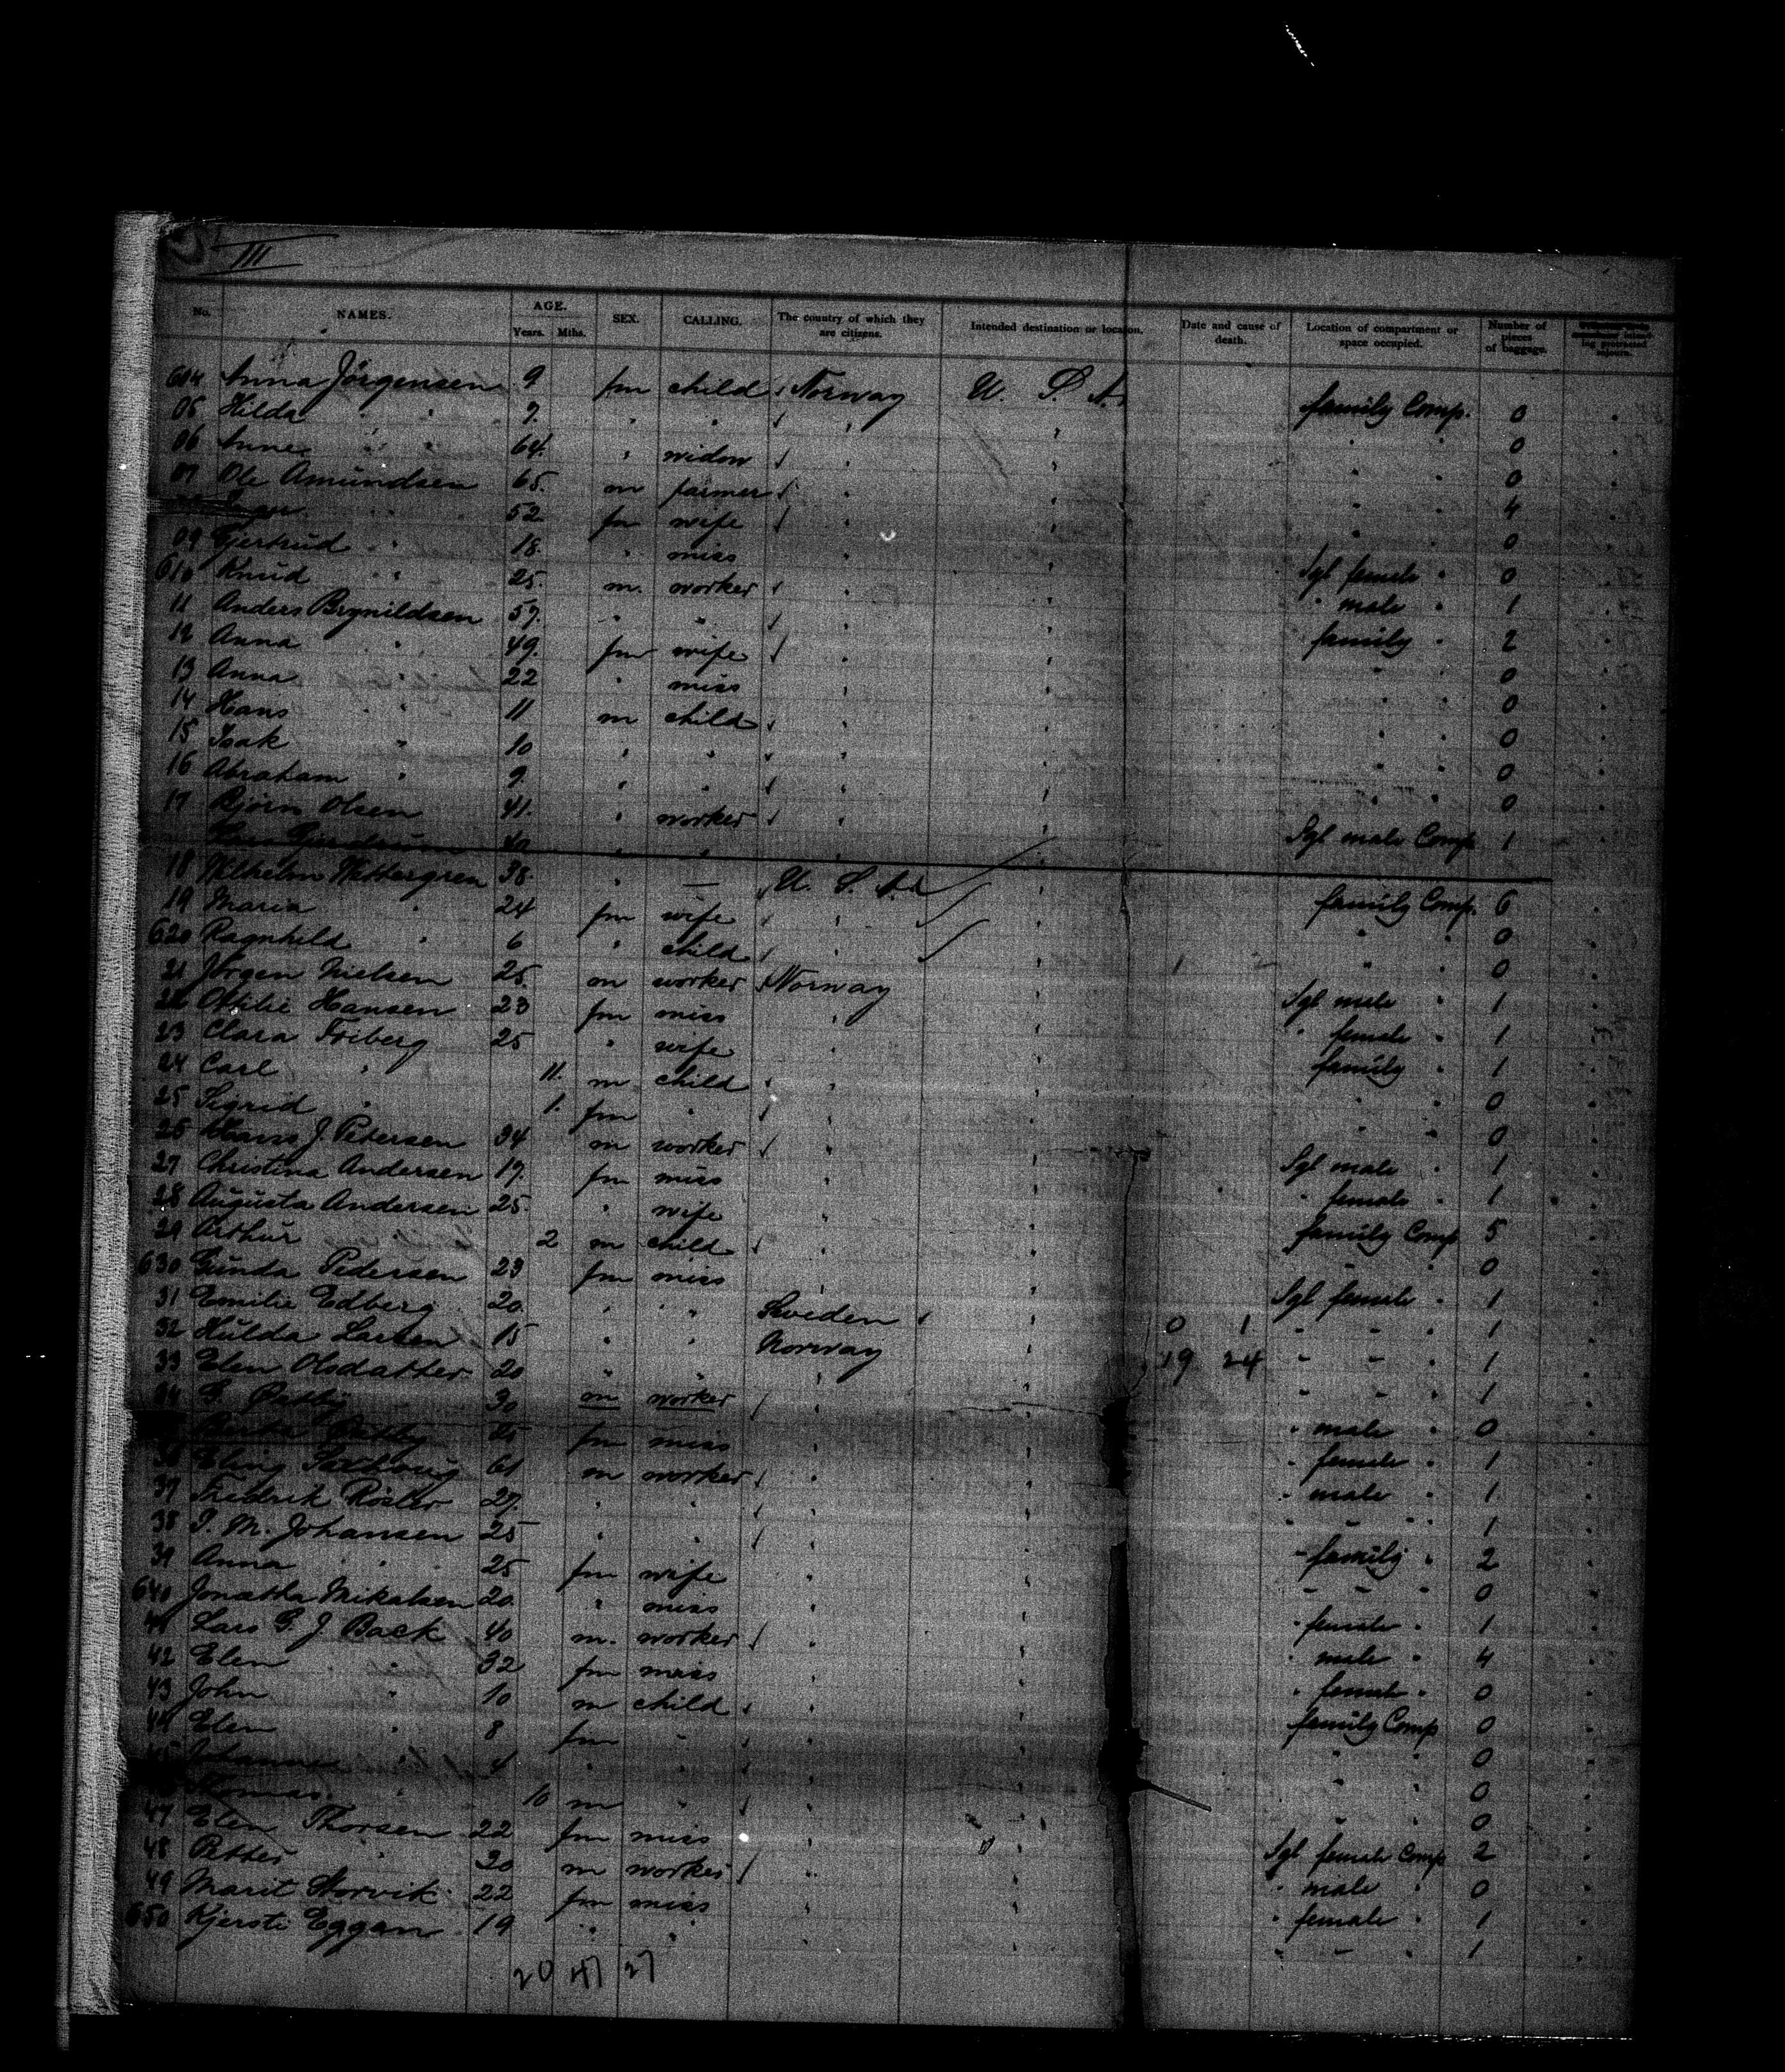 III
No. NAMES. AGE. Years. Mths. SEX. CALLING. The country of which they are citizens. Intended destination or location. Date and cause of death. Location of compartment or space occupied. Number of pieces of baggage.
604 Anna Jörgensen 9 fm child Norway U. S. A. family Comp. 0
05 Hilda " 7. " " " " 0
06 Anne " 64. " widow " " " " 0
07 Ole Amundsen 65. m farmer " " " " 4
" 52 fm wife " " " " 0
09 Gjertrud " 18. " miss " " Sgl female " 0
610 Knud " 25. m. worker " " " male " 1
11 Anders Brynildsen 57. " " " " family " 2
12 Anna " 49. fm wife " " " " 0
13 Anna " 22 " miss " " " " 0
14 Hans " 11 m child " " " " 0
15 Isak " 10 " " " " " " 0
16 Abraham " 9 " " " " " " 0
17 Bjørn Olsen 41. " worker " " Sgl male Comp 1
40 " " " "
18 Wilhelm Wettergren 38. " — U. S. A. " family Comp. 6
19 Maria " 24 fm wife " " " " 0
620 Ragnhild " 6 " child " " " " 0
21 Jörgen Nielsen 25. m worker Norway " Sgl male " 1
22 Ottilie Hansen 23 fm miss " " " female " 1
23 Clara Friberg 25 " wife " " family " 1
24 Carl " 11. m child " " " " 0
25 Sigrid " 1. fm " " " " " 0
26 Hans J. Petersen 34 m worker " " Sgl male " 1
27 Christina Andersen 17. fm miss " " " female " 1
28 Augusta Andersen 25. " wife " " family Comp 5
29 Arthur 2 m child " " " " 0
630 Gunda Pedersen 23 fm miss " " Sgl female " 1
31 Emilie Edberg 20. " " Sweden " 0 1 " " " 1
32 Hulda Larsen 15 " " Norway " 19 24 " " " 1
33 Elen Olsdatter 20 " " " " " " " 1
34 30 m worker " " " male " 0
25 fm miss " " " female " 1
36 61 m worker " " " male " 1
37 Fredrik 27. " " " " " " " 1
38 P. M. Johansen 25 " " " " " family " 2
39 Anna " 25 fm wife " " " " 0
640 Mikalsen 20. " miss " " " female " 1
41 Lars G. J. Back 40 m. worker " " " male " 4
42 Elen " 32 fm miss " " " female " 0
43 John " 10 m child " " family Comp 0
44 Elen " 8 fm " " " " " 0
4 " " " " " " 0
Thomas 10 m " " " " " 0
47 Elen Thorsen 22 fm miss " " Sgl female Comp 2
48 Petter " 20 m worker " " " male " 0
49 Marit Storvik 22 fm miss " " " female " 1
650 Kjersti Eggan 19 " " " " " " " 1
20 47 27